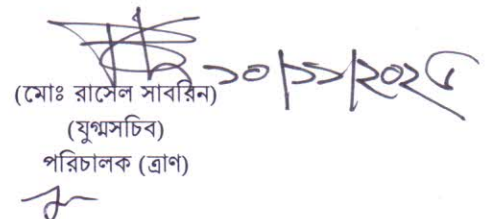 ১০/১১/২০২৫
(মোঃ রাসেল সাবরিন)
(যুগ্মসচিব)
পরিচালক (ত্রাণ)